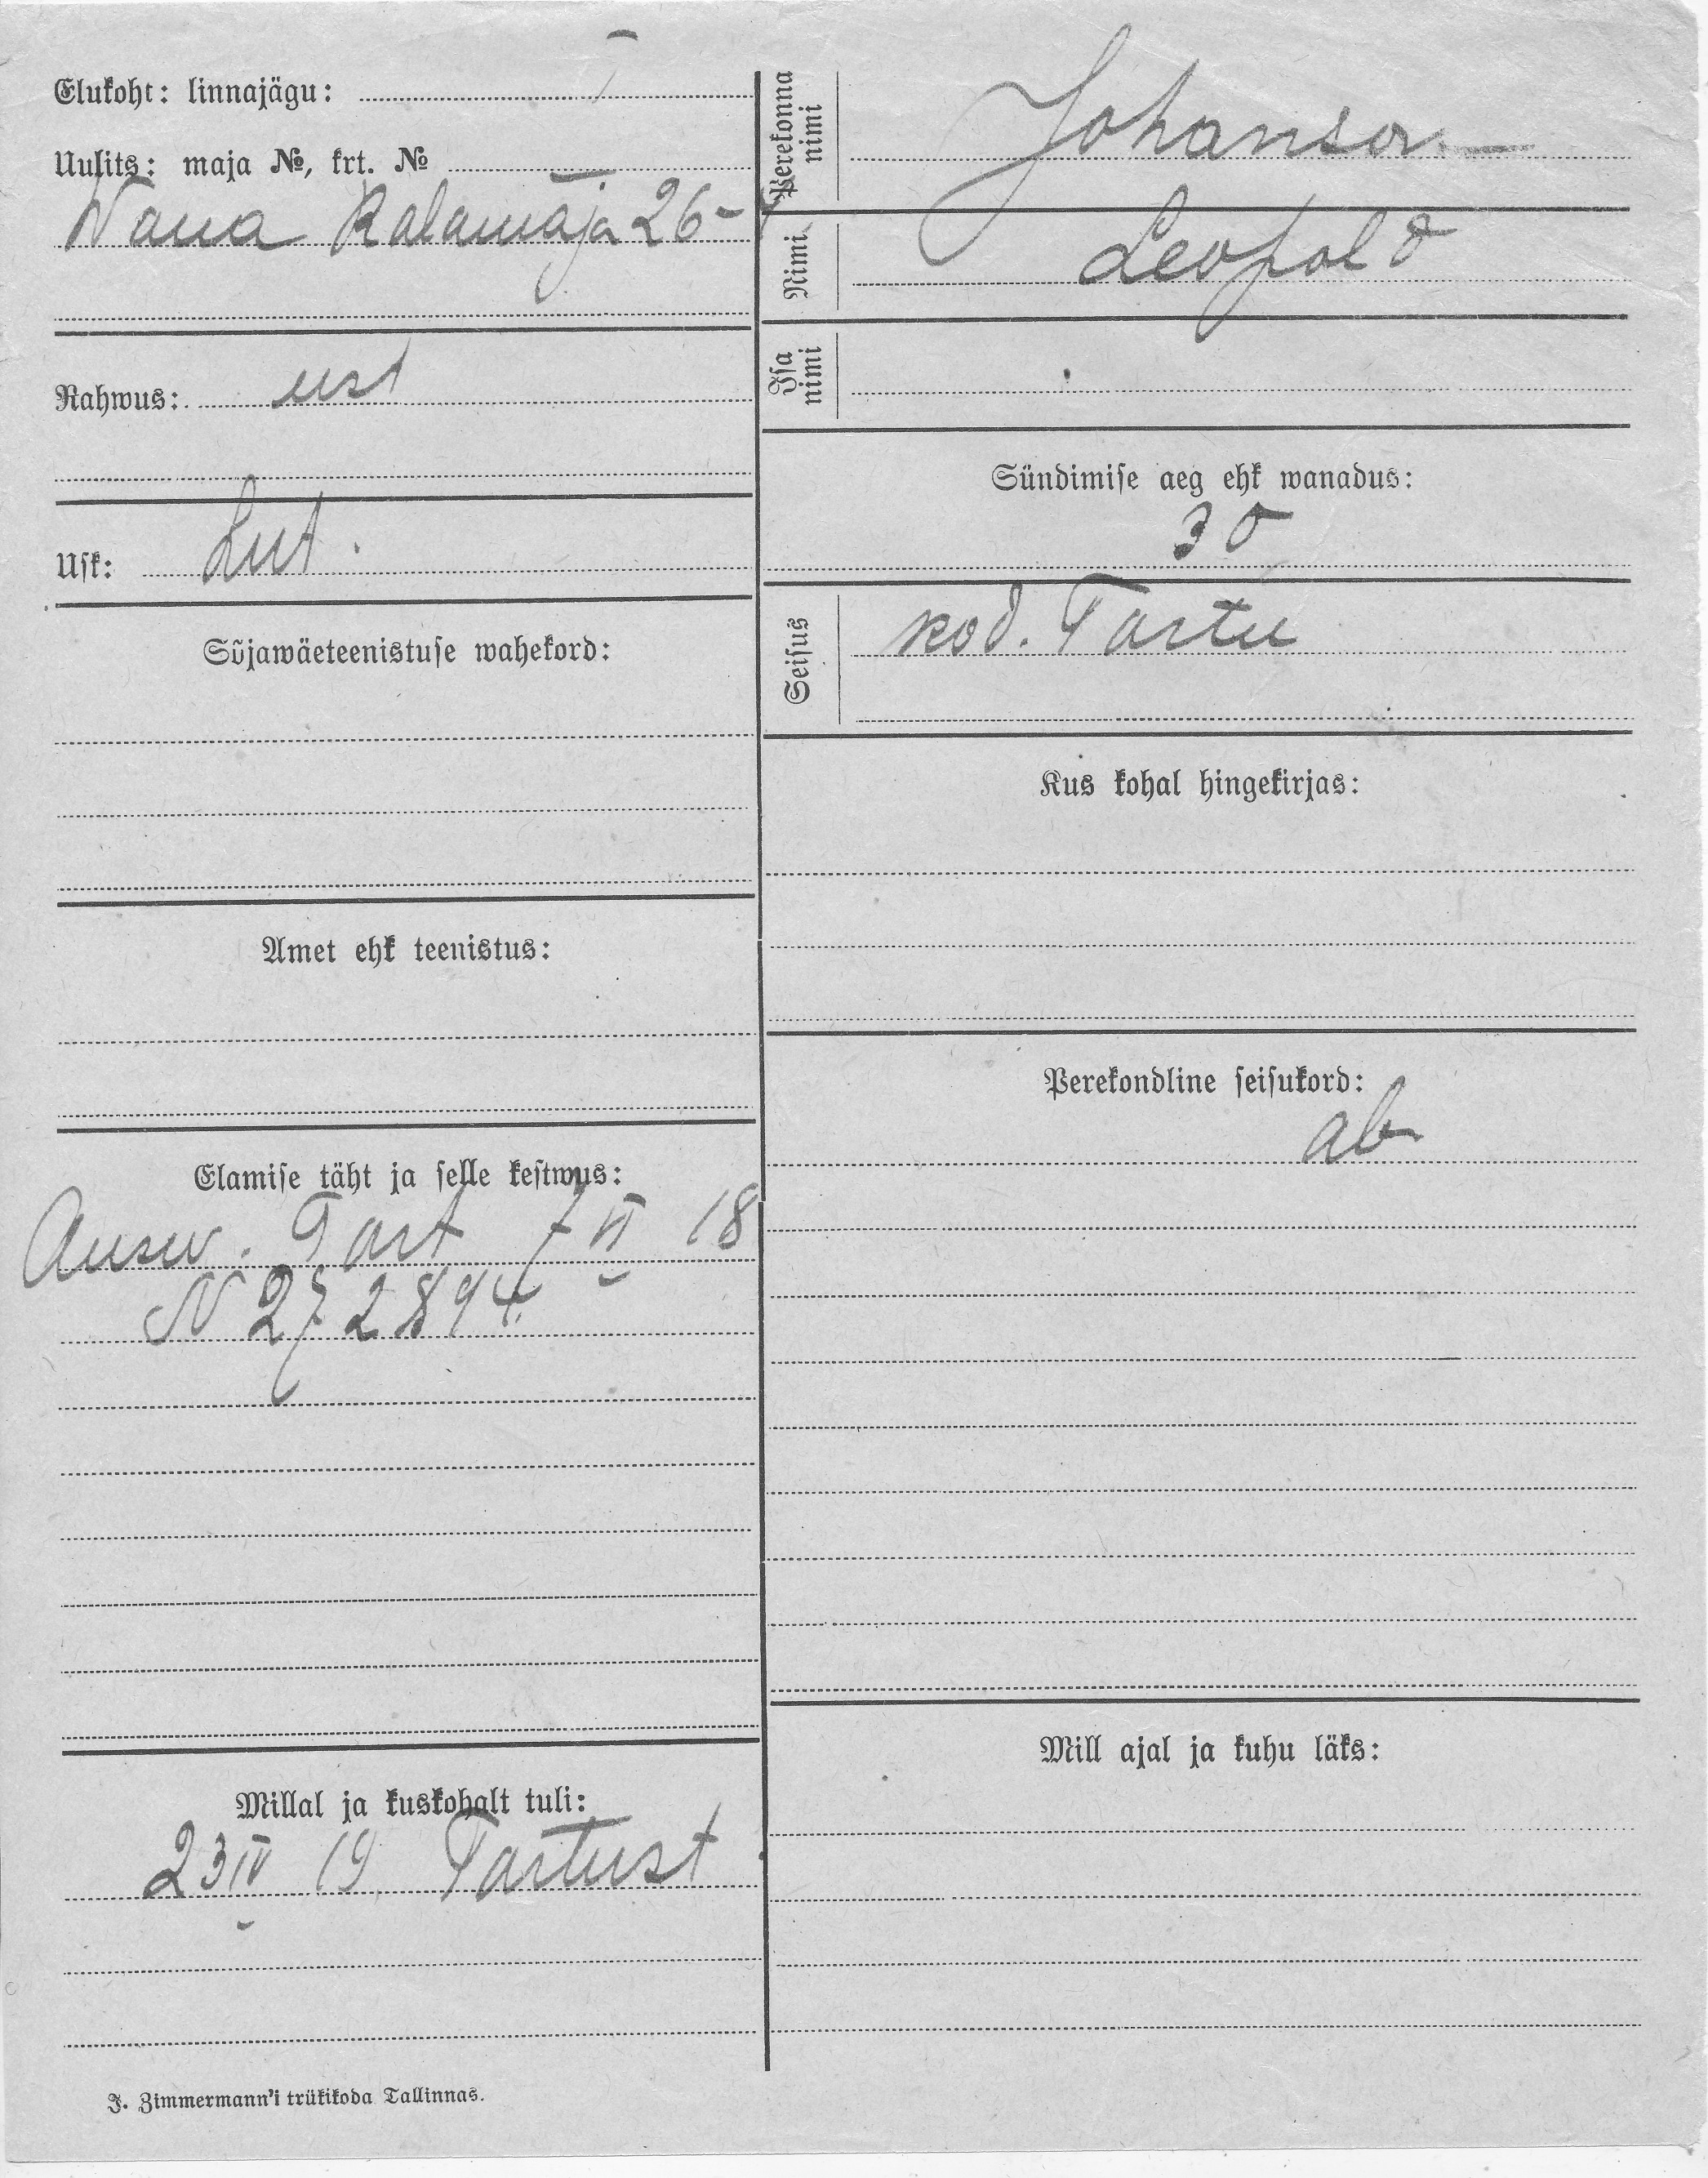 Elukoht: linnajägu: I
Uulits: maja №, krt. №
Wana Kalamaja 26-
Rahwus: est
Usk: Lut.
Sõjawäeteenistuse wahekord:
Amet ehk teenistus:
Elamise täht ja selle kestwus:
Ausw. Tart 7 VI 18
N 272894
Millal ja kuskohalt tuli:
23 IV 19. Tartust
J. Zimmermann'i trükikoda Tallinnas.
Perekonna nimi
Johanson
Nimi
Leopold
Isa nimi
Sündimise aeg ehk wanadus:
30
Seisus
kod. Tartu
Kus kohal hingekirjas:
Perekondline seisukord:
ab
Mill ajal ja kuhu läks: